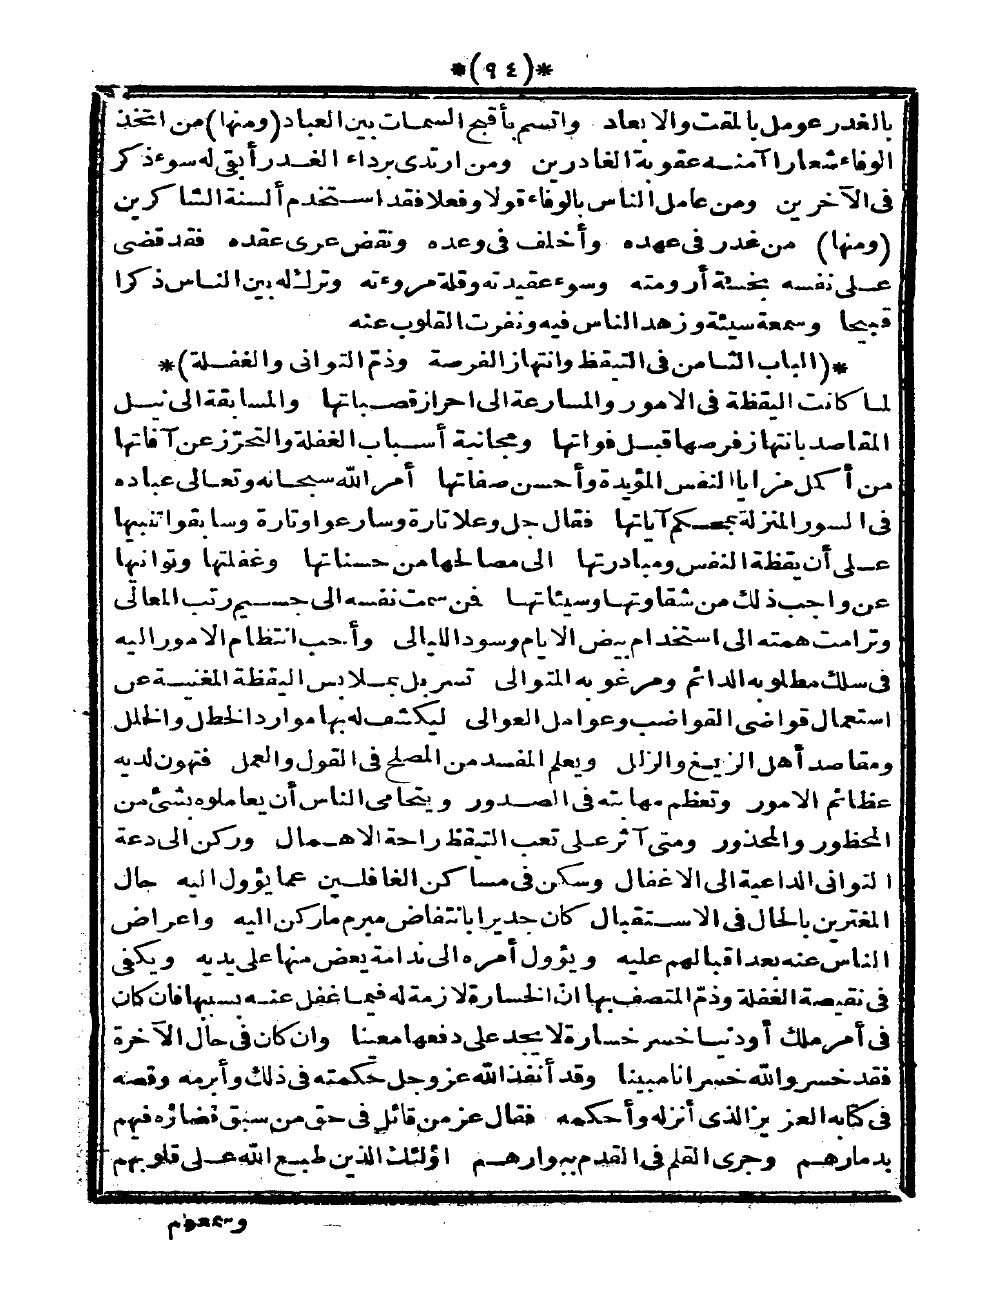 *(٩٤)*
بالغدر عومل بالمقت والابعاد واتسم بأقبح السمات بين العباد (ومنها) من اتخذ
الوفاء شعارا آمنه عقوبة الغادرين ومن ارتدى برداء الغدر أبقى له سوء ذكر
فى الآخرين ومن عامل الناس بالوفاء قولا وفعلا فقد استخدم ألسنة الشاكرين
(ومنها) من غدر فى عهده وأخلف فى وعده ونقض عرى عقده فقد قضى
على نفسه بخسة أرومته وسوء عقيدته وقلة مروءته وترك له بين الناس ذكرا
قبيحا وسمعة سيئة وزهد الناس فيه ونفرت القلوب عنه
*(الباب الثامن فى التيقظ وانتهاز الفرصة وذمّ التوانى والغفلة)*
لما كانت اليقظة فى الامور والمسارعة الى احراز قصباتها والمسابقة الى نيل
المقاصد بانتهاز فرصها قبل فواتها ومجانبة أسباب الغفلة والتحرّز عن آفاتها
من أكمل مزايا النفس المؤيدة وأحسن صفاتها أمر الله سبحانه وتعالى عباده
فى السور المنزلة بمحكم آياتها فقال جل وعلا تارة وسارعوا وتارة وسابقوا تنبيها
على أن يقظة النفس ومبادرتها الى مصالحها من حسناتها وغفلتها وتوانيها
عن واجب ذلك من شقاوتها وسيئاتها فمن سمت نفسه الى جسيم رتب المعالى
وترامت همته الى استخدام بيض الايام وسود الليالى وأحب انتظام الامور اليه
فى سلك مطلوبه الدائم ومرغوبه المتوالى تسربل بملابس اليقظة المغنية عن
استعمال قواضى القواضب وعوامل العوالى ليكشف له بها موارد الخطل والخلل
ومقاصد أهل الزيغ والزلل ويعلم المفسد من المصلح فى القول والعمل فتهون لديه
عظائم الامور وتعظم مهابته فى الصدور ويتحامى الناس أن يعاملوه بشئ من
المحظور والمحذور ومتى آثر على تعب التيقظ راحة الاهمال وركن الى دعة
التوانى الداعية الى الاغفال وسكن فى مساكن الغافلين عما يؤول اليه حال
المغترين بالحال فى الاستقبال كان جديرا بانتقاض مبرم ماركن اليه واعراض
الناس عنه بعد اقبالهم عليه ويؤول أمره الى ندامة يعض منها على يديه ويكفى
فى نقيصة الغفلة وذمّ المتصف بها انّ الخسارة لازمة له فيما غفل عنه بسببها فان كان
فى أمر ملك أو دنيا خسر خسارة لا يجد على دفعها معينا وان كان فى حال الآخرة
فقد خسر والله خسرانا مبينا وقد أنفذ الله عز وجل حكمته فى ذلك وأبرمه وقصه
فى كتابه العزيز الذى أنزله وأحكمه فقال عز من قائل فى حق من سبق قضاؤه فيهم
بدمارهم وجرى القلم فى القدم ببوارهم اؤلئك الذين طبع الله على قلوبهم
وسمعهم